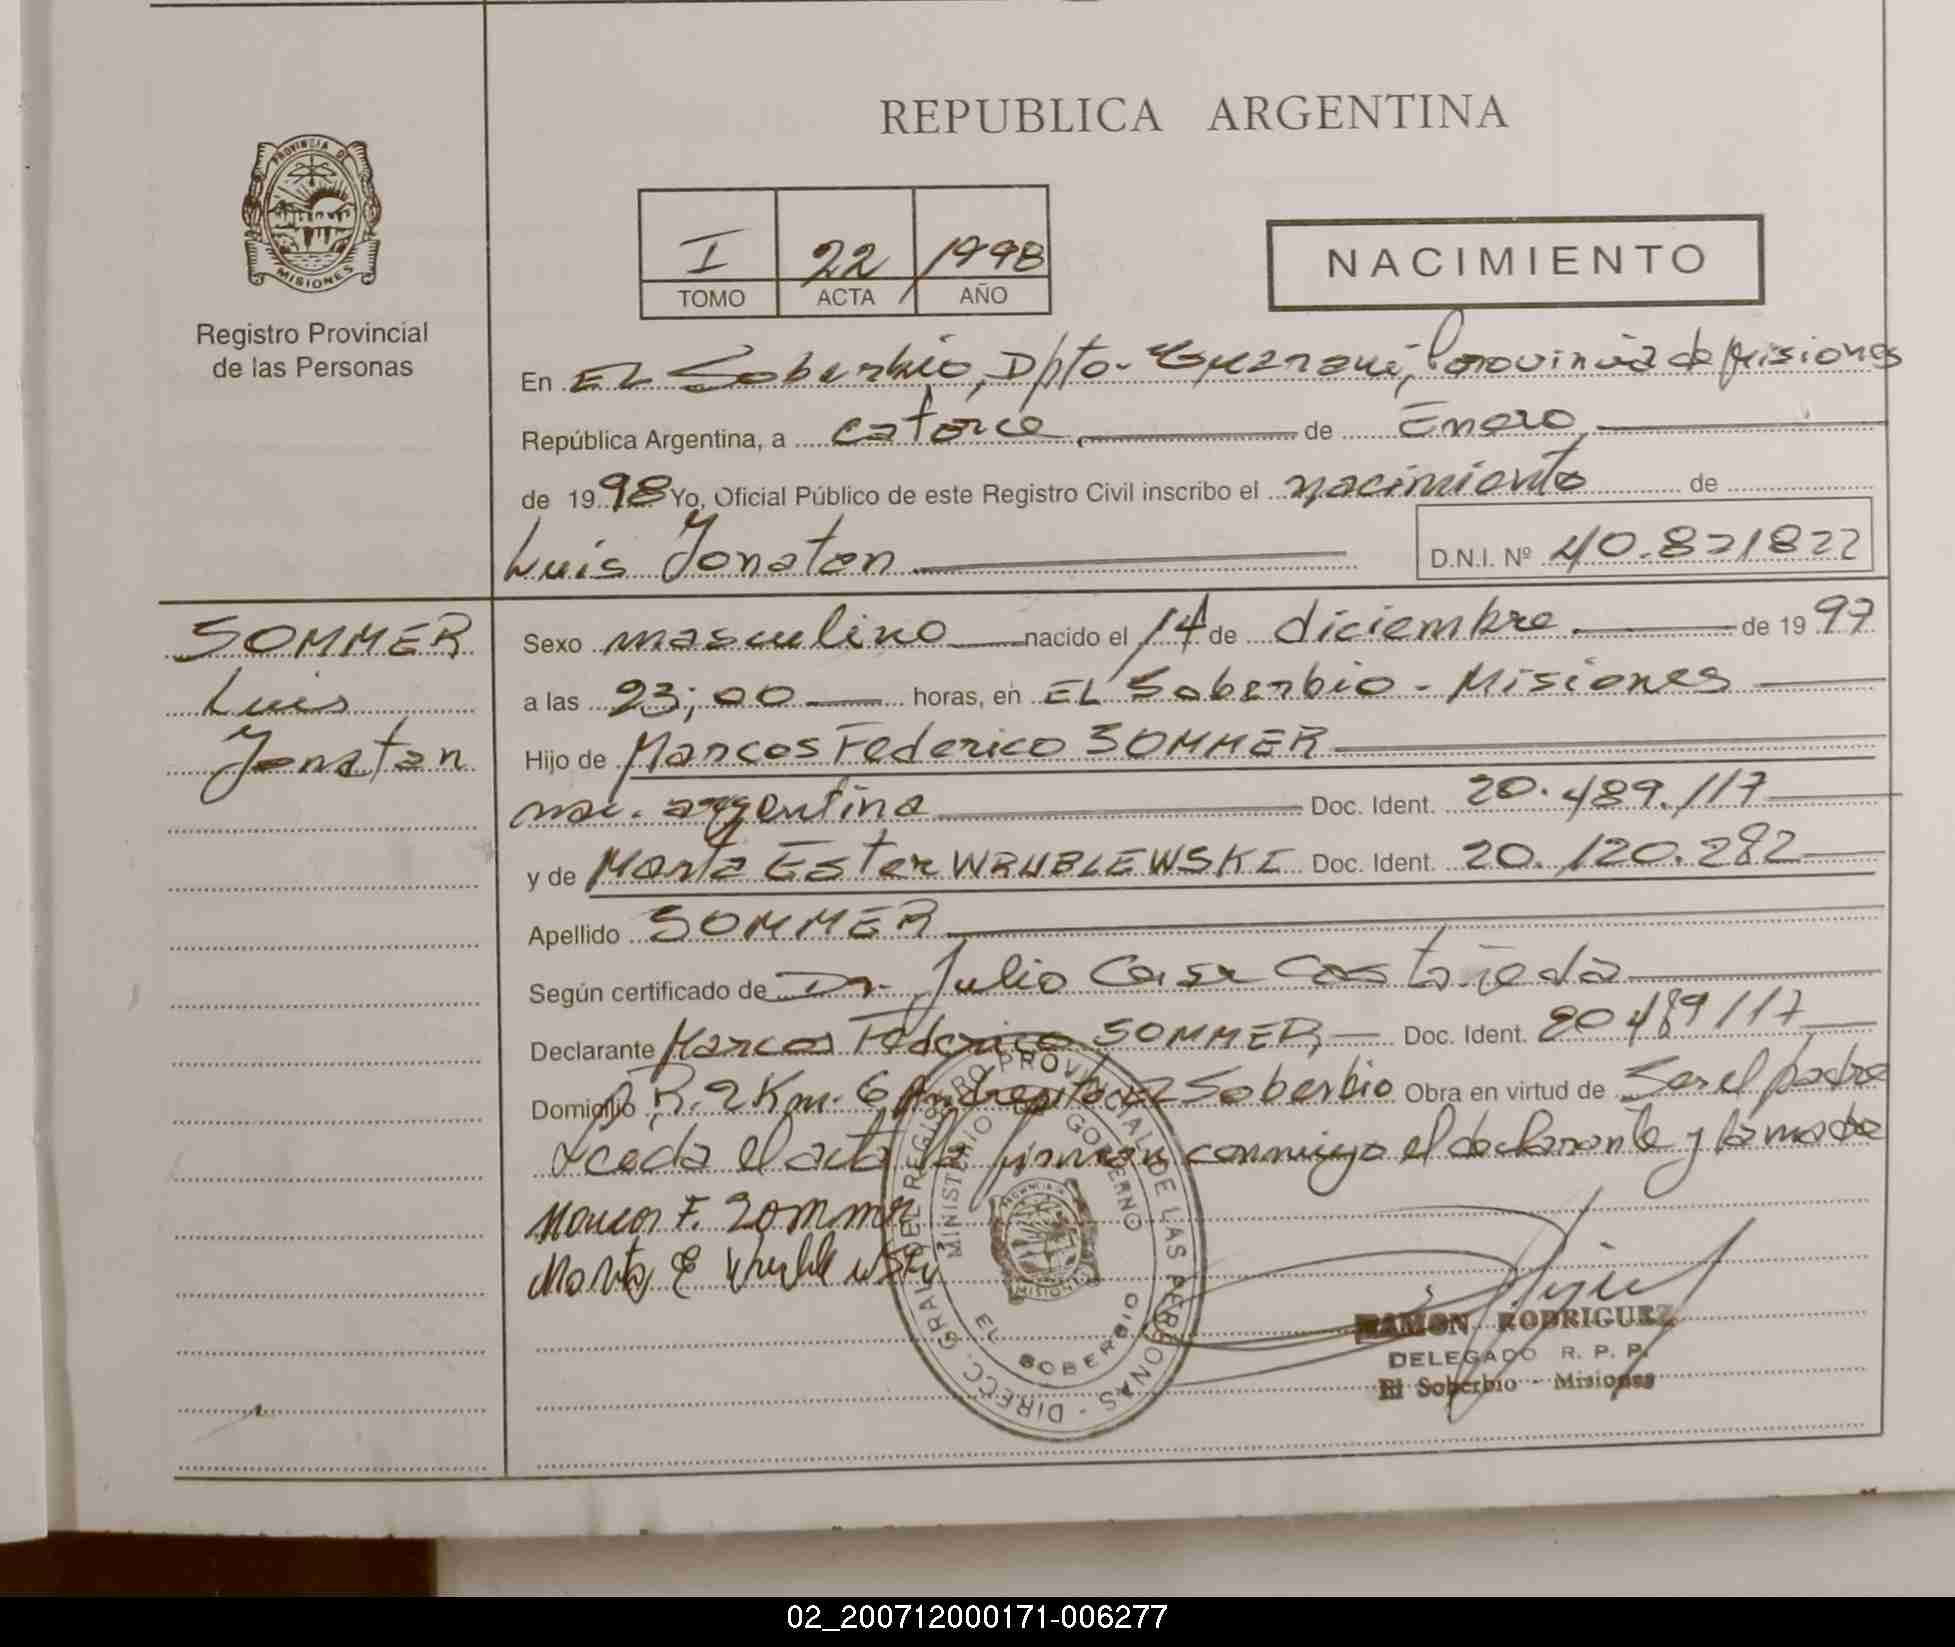 REPUBLICA ARGENTINA
PROVINCIA DE
MISIONES
Registro Provincial
de las Personas
I 22 1998
TOMO ACTA AÑO
NACIMIENTO
En EL Soberbio, Dpto. Guarani, Provincia de Misiones
República Argentina, a catorce de Enero
de 1998 Yo, Oficial Público de este Registro Civil inscribo el nacimiento de
Luis Jonatan D.N.I. Nº 40.821822
SOMMER
Luis
Jonatan
Sexo masculino nacido el 14 de diciembre de 1997
a las 23;00 horas, en EL Soberbio - Misiones
Hijo de Marcos Federico SOMMER
nac. argentina Doc. Ident. 20.489.117
y de Marta Ester WRUBLEWSKI Doc. Ident. 20.120.282
Apellido SOMMER
Según certificado de Dr. Julio Cesar Castañeda
Declarante Marcos Federico SOMMER, Doc. Ident. 20489117
Domicilio R. 2 Km. 6 Andresito EL Soberbio Obra en virtud de Ser el padre
Leida el acta la firman conmigo el declarante y la madre
Marcos F. Sommer
Marta E Wrublewski
DIRECC. GRAL. DEL REGISTRO PROVINCIAL DE LAS PERSONAS -
MINISTERIO DE GOBIERNO
PROVINCIA DE
MISIONES
EL SOBERBIO
RAMON RODRIGUEZ
DELEGADO R. P. P.
El Soberbio - Misiones
02_200712000171-006277